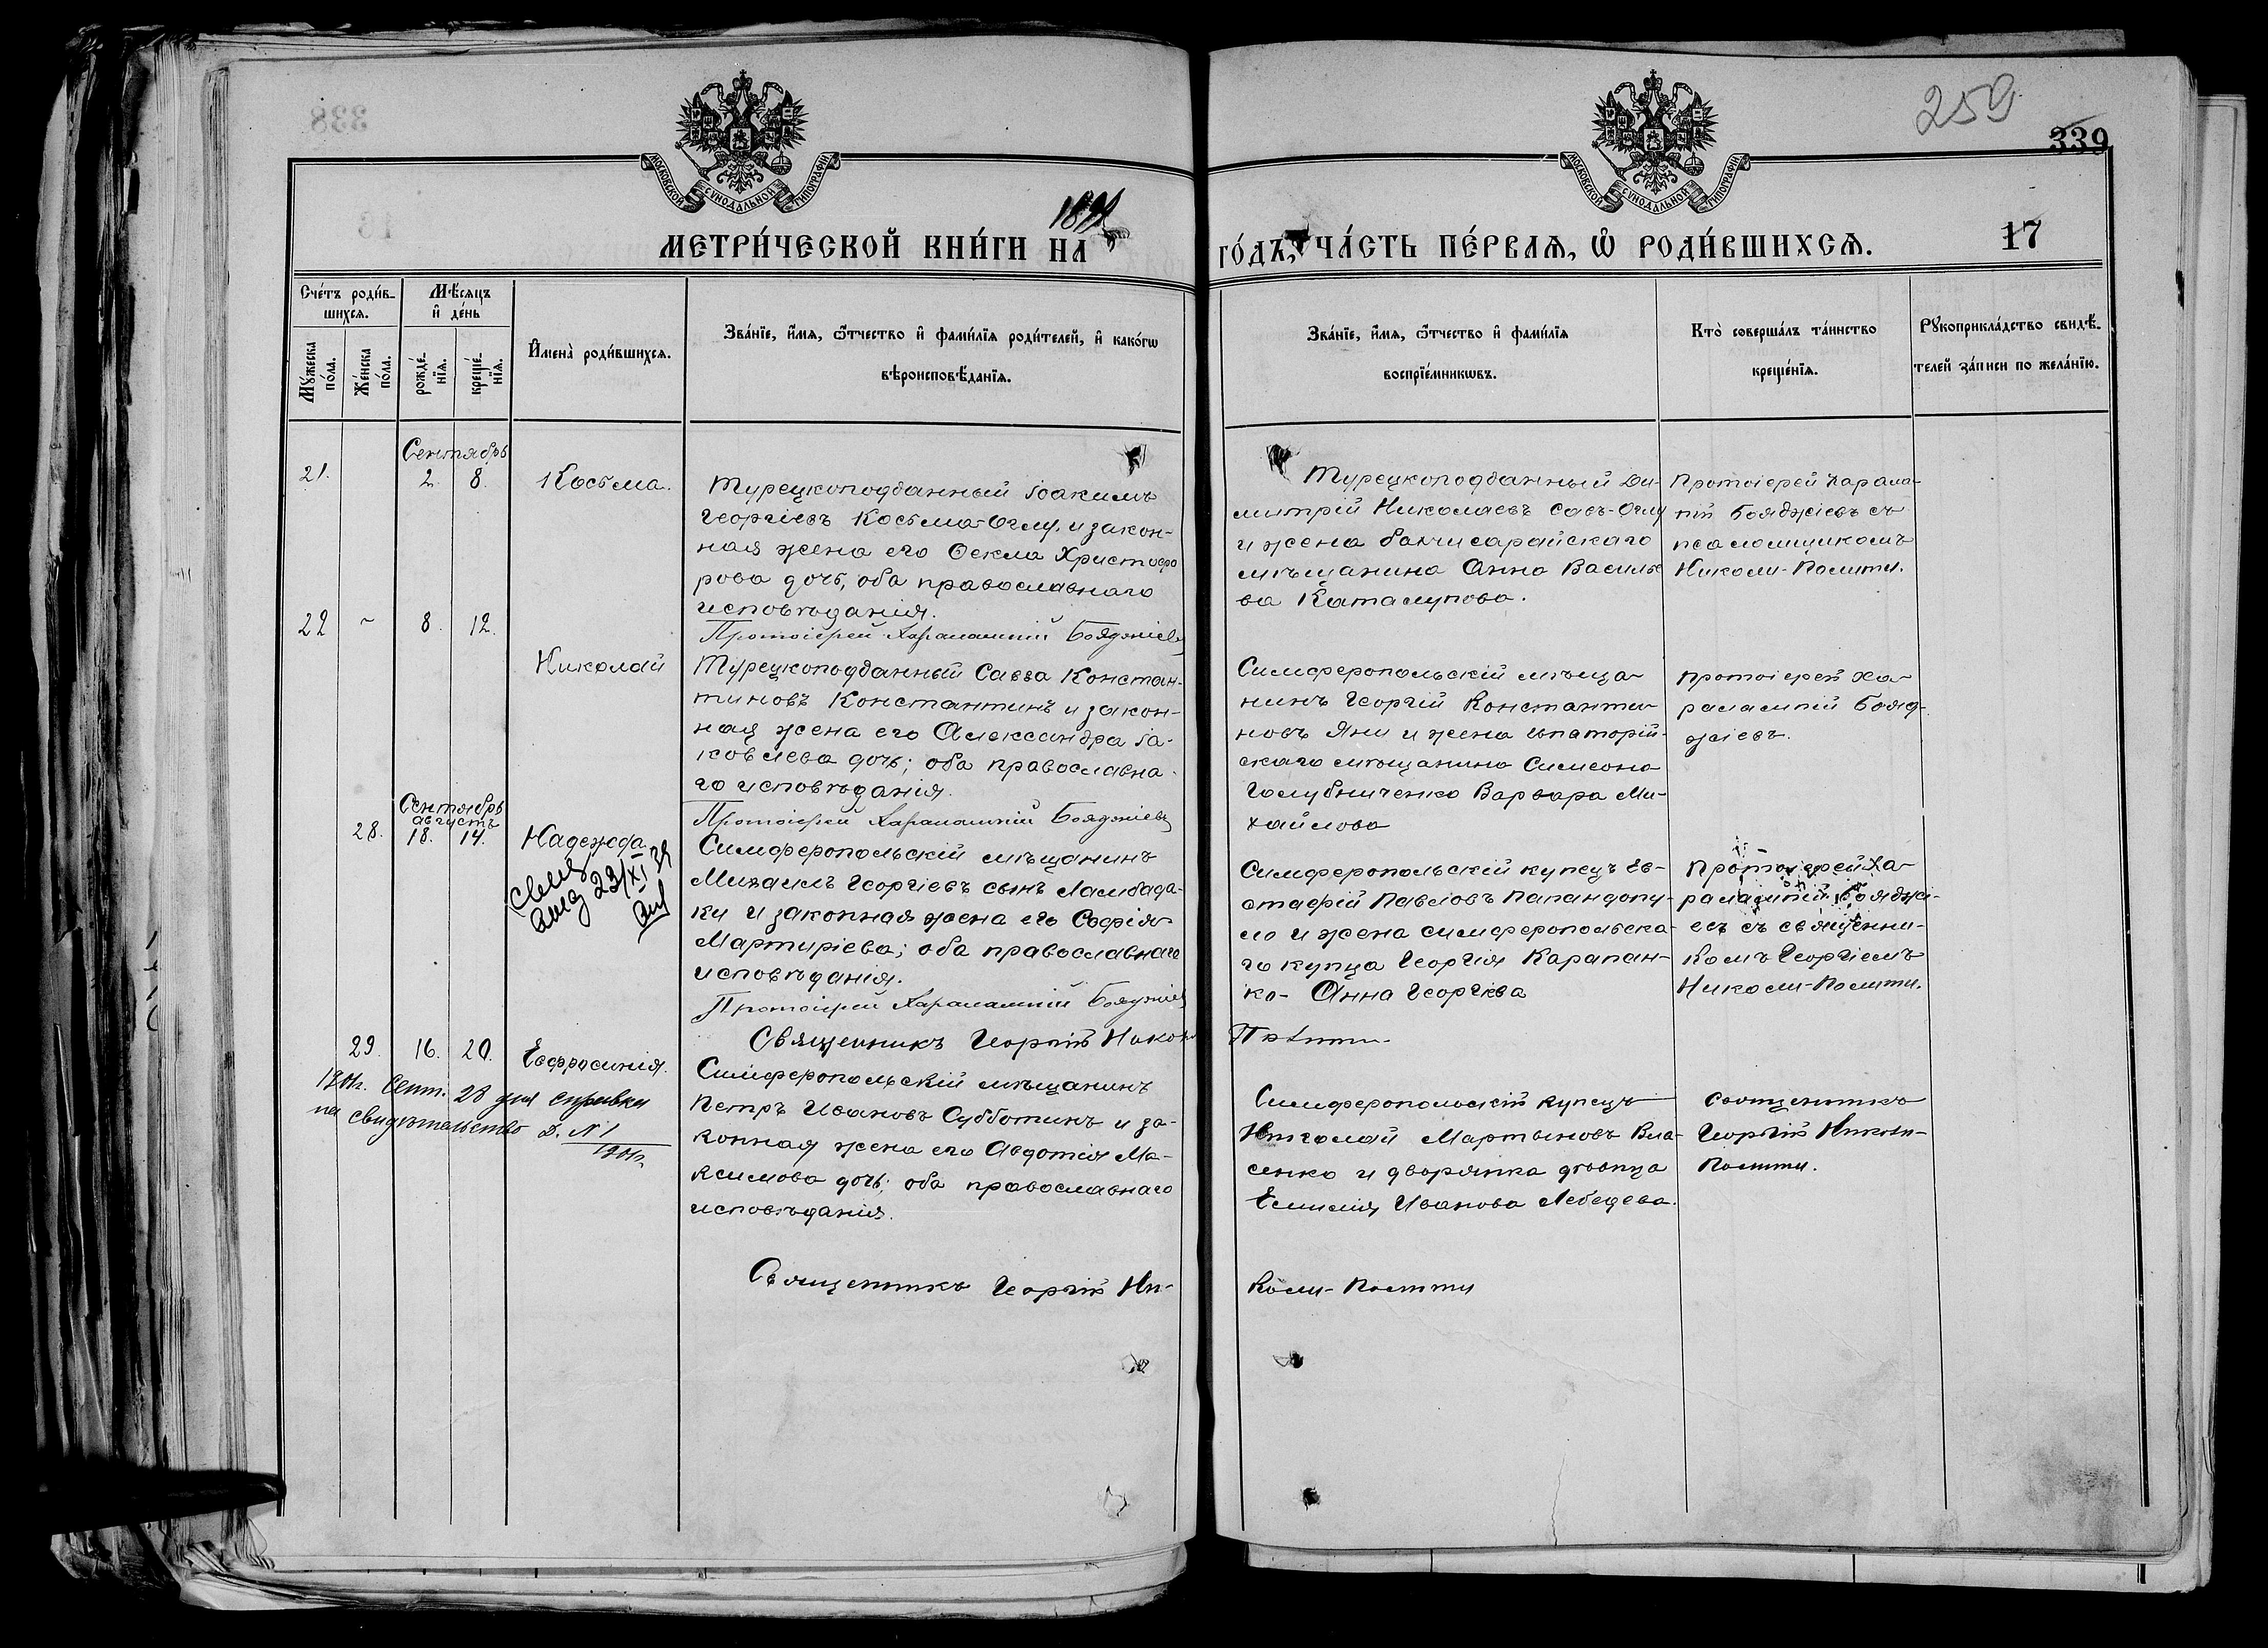 338
259
339
МОСКОВСКОЙ СѴНОДАЛЬНОЙ ТИПОГРАФІИ
МОСКОВСКОЙ СѴНОДАЛЬНОЙ ТИПОГРАФІИ
13
МЕТРИ́ЧЕСКОЙ КНИ́ГИ НА
ГО́ДЪ, ЧА́СТЬ ПЕ́РВАѦ, Ѡ҆ РОДИ́ВШИХСѦ.
17
Сче́тъ роди́в-
шихсѧ.
Мѣ́сѧцъ
и҆ де́нь
Мꙋ́жеска
по́ла.
Же́нска
по́ла.
рожде́-
нїѧ.
креще́-
нїѧ.
И҆мена̀ роди́вшихсѧ.
Зва́нїе, и҆́мѧ, ѻ҆́тчество и҆ фами́лїѧ роди́телей, и҆ како́гѡ
вѣроисповѣ́данїѧ.
Зва́нїе, и҆́мѧ, ѻ҆́тчество и҆ фами́лїѧ
воспрїе́мникѡвъ.
Кто̀ соверша́лъ та́инство
креще́нїѧ.
Рꙋкоприкла́дство свидѣ́-
телей за́писи по жела́нїю.
Сентябрь
21. 2. 8. Косьма.
Турецкоподданный Іоакимъ
Георгіевъ Косьма-Оглу, и закон-
ная жена его Ѳекла Христофо
рова дочь, оба православнаго
исповѣданія.
Протоіерей Харалампій Бояджіевъ
Турецкоподданный Ди-
митрій Николаевъ Савъ-Оглу
и жена бахчисарайскаго
мѣщанина Анна Василье
ва Каталупова.
Протоіерей Харала-
пій Бояджіевъ съ
псаломщикомъ
Николи-Полити.
22 ~ 8. 12.
Николай
Турецкоподданный Савва Констан-
тиновъ Константинъ и закон-
ная жена его Александра Іа-
ковлева дочь; оба православна-
го исповѣданія.
Протоіерей Харалампій Бояджіевъ
Симферопольскій мѣща-
нинъ Георгій Константи-
новъ Яни и жена евпаторій-
скаго мѣщанина Симеона
Голубниченко Варвара Ми-
хайлова
протоіерей Ха-
ралампій Бояд-
жіевъ.
Сентябрь
августъ
28. 18. 14. Надежда
23/XI 39
Симферопольскій мѣщанинъ
Михаилъ Георгіевъ сынъ Ламбада-
ки и законная жена его Софія
Мартиріева; оба православнаго
исповѣданія.
Протоіерей Харалампій Бояджіевъ
Священникъ Георгій Николи
Полити.
Симферопольскій купецъ Ев-
стафій Павловъ Папандопу-
ло и жена симферопольска-
го купца Георгія Карапан-
ко- Анна Георгіева
Протоіерей Ха-
ралампій Бояджі-
евъ съ священни-
комъ Георгіемъ
Николи-Полити.
29. 16. 20. Евфросинія.
1901г. Сент. 28 дня справка
на свидѣтельство д. N 1
1901г.
Симферопольскій мѣщанинъ
Петръ Ивановъ Субботинъ и за-
конная жена его Авдотія Ма-
ксимова дочь; оба православнаго
исповѣданія.
Симферопольскій купецъ
Николай Мартыновъ Вла-
сенко и дворянка дѣвица
Емилія Иванова Лебедева.
Священникъ
Георгій Николи-
Полити.
Священникъ Георгій Ни-
коли-Полити